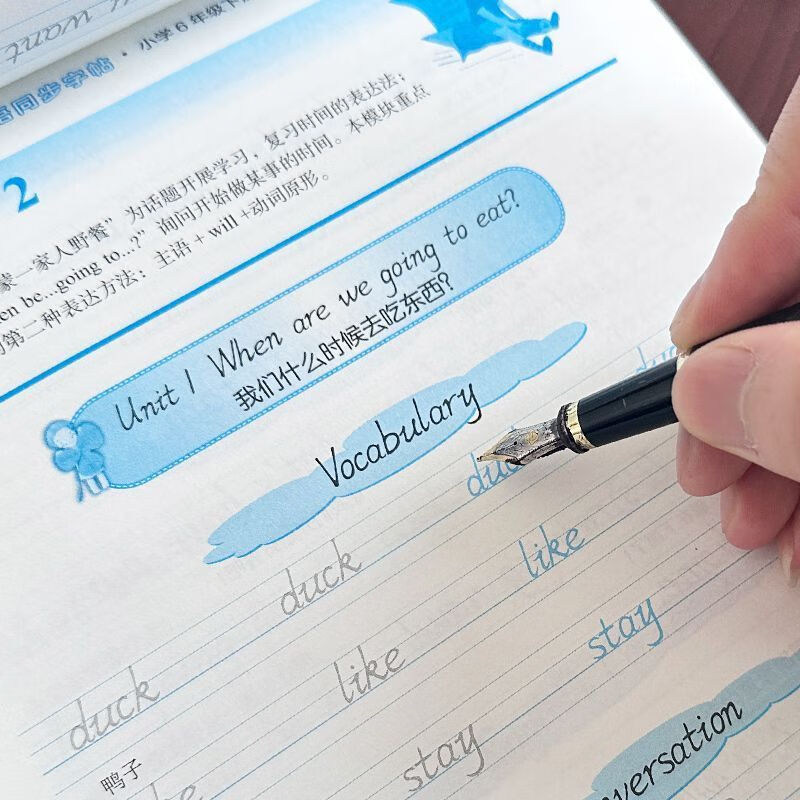 u want
同步字帖·小学6年级下
2
家一家人野餐”为话题开展学习,复习时间的表达法;
en be...going to...?”询问开始做某事的时间。本模块重点
第二种表达方法:主语+will+动词原形。
Unit 1 When are we going to eat?
我们什么时候去吃东西?
Vocabulary
duck duck duc
duck like like
鸭子
stay stay
versation